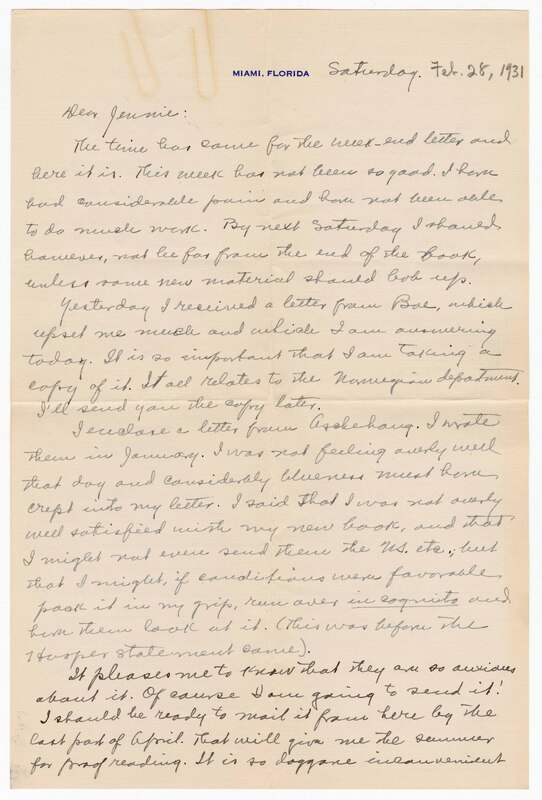 MIAMI, FLORIDA Saturday, Feb. 28, 1931
Dear Jennie:
The time has come for the week-end letter and
here it is. This week has not been so good. I have
had considerable pain and have not been able
to do much work. By next Saturday I should
however, not be far from the end of the book,
unless some new material should bob up.
Yesterday I received a letter from Boe, which
upset me much and which I am answering
today. It is so important that I am taking a
copy of it. It all relates to the Norwegian department.
I'll send you the copy later.
I enclose a letter from Aschehoug. I wrote
them in January. I was not feeling overly well
that day and considerably blueness must have
crept into my letter. I said that I was not overly
well satisfied with my new book, and that
I might not even send them the MS. etc., but
that I might, if conditions were favorable
pack it in my grip, run over in cognito and
have them look at it. (This was before the
Harper statement came).
It pleases me to know that they are so anxious
about it. Of course I am going to send it!
I should be ready to mail it from here by the
last part of April. That will give me the summer
for proof reading. It is so doggone inconvenient